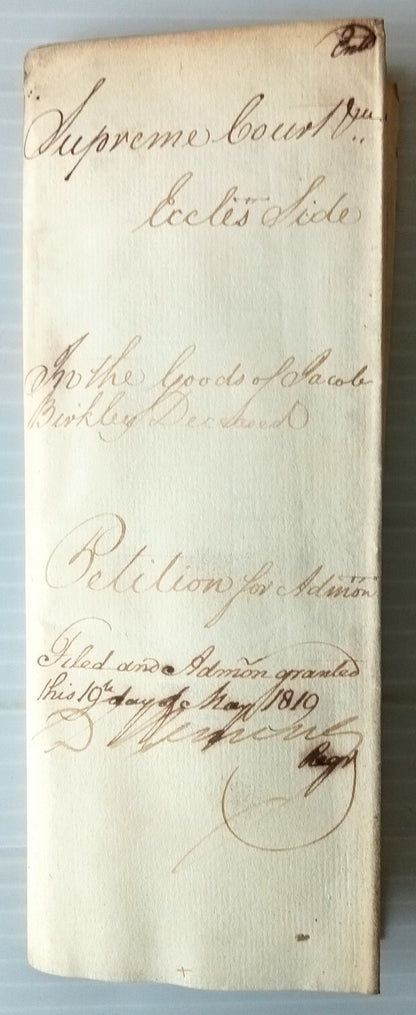 Entd
Supreme Court
Ecclēs Side
In the Goods of Jacob
Birkley Deceased
Petition for Admōn
Filed and Admōn granted
this 19th day of May 1819
Regr